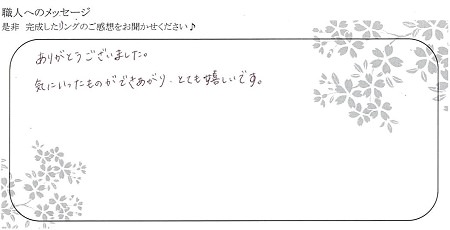 職人へのメッセージ
是非 完成したリングのご感想をお聞かせください♪
ありがとうございました。
気にいったものができあがり、とても嬉しいです。